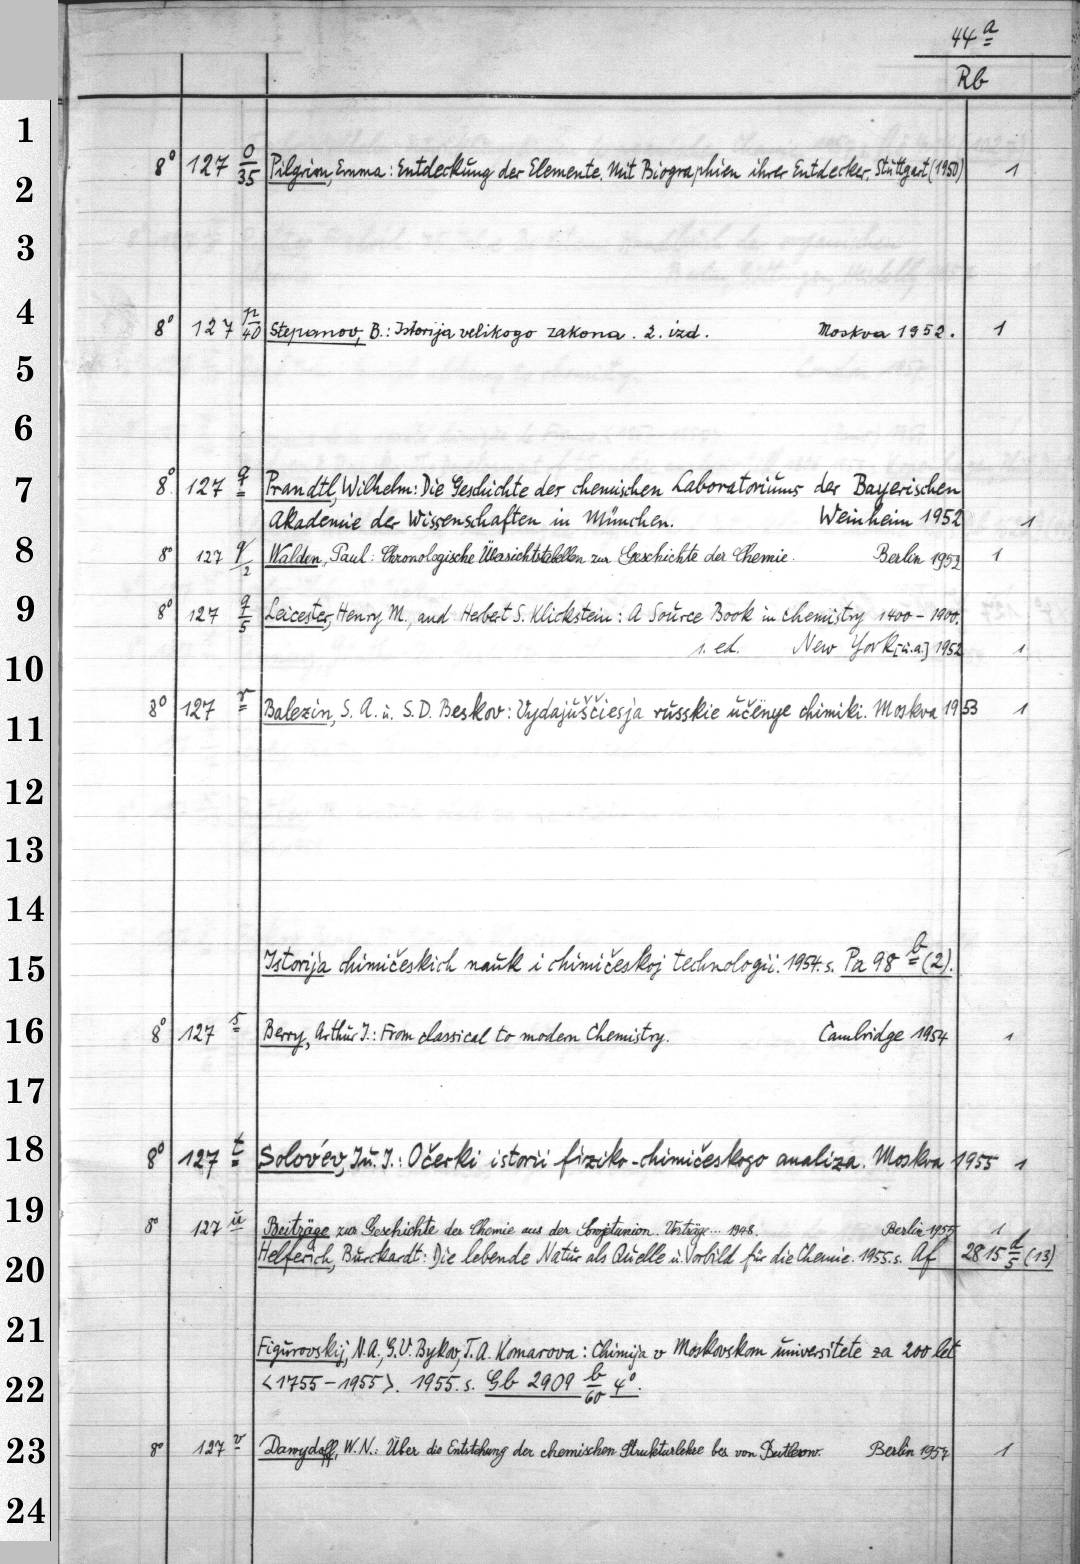 44 a
Rb
1
2
3
4
5
6
7
8
9
10
11
12
13
14
15
16
17
18
19
20
21
22
23
24
8° 127 o/35 Pilgrim, Emma: Entdeckung der Elemente. Mit Biographien ihrer Entdecker. Stuttgart (1950) 1
8° 127 p/40 Stepanov, B.: Istorija velikogo zakona. 2. izd. Moskva 1952. 1
8° 127 q Prandtl, Wilhelm: Die Geschichte des chemischen Laboratoriums der Bayerischen
Akademie der Wissenschaften in München. Weinheim 1952 1
8° 127 q/2 Walden, Paul: Chronologische Übersichtstabellen zur Geschichte der Chemie. Berlin 1952 1
8° 127 q/5 Leicester, Henry M., and Herbert S. Klickstein: A Source Book in chemistry 1400-1900.
1. ed. New York [u.a.] 1952 1
8° 127 r Balezin, S. A. u. S.D. Beskov: Vydajuščiesja russkie učënye chimiki. Moskva 1953 1
Istorija chimičeskich nauk i chimičeskoj technologii. 1954. s. Pa 98 b (2).
8° 127 s Berry, Arthur J.: From classical to modern Chemistry. Cambridge 1954 1
8° 127 t Solov'ev, Ju. I.: Očerki istorii fiziko-chimičeskogo analiza. Moskva 1955 1
8° 127 u Beiträge zur Geschichte der Chemie aus der Sowjetunion. Vorträge... 1948. Berlin 1955 1
Helferich, Burckardt: Die lebende Natur als Quelle u. Vorbild für die Chemie. 1955. s. Af 2815 d/5 (13)
Figurovskij, N.A., G.V. Bykov, T.A. Komarova: Chimija v Moskovskom universitete za 200 let
<1755-1955>. 1955. s. Gb 2909 b/60 4°.
8° 127 v Dawydoff, W.N.: Über die Entstehung der chemischen Strukturlehre bes von Butlerow. Berlin 1957 1